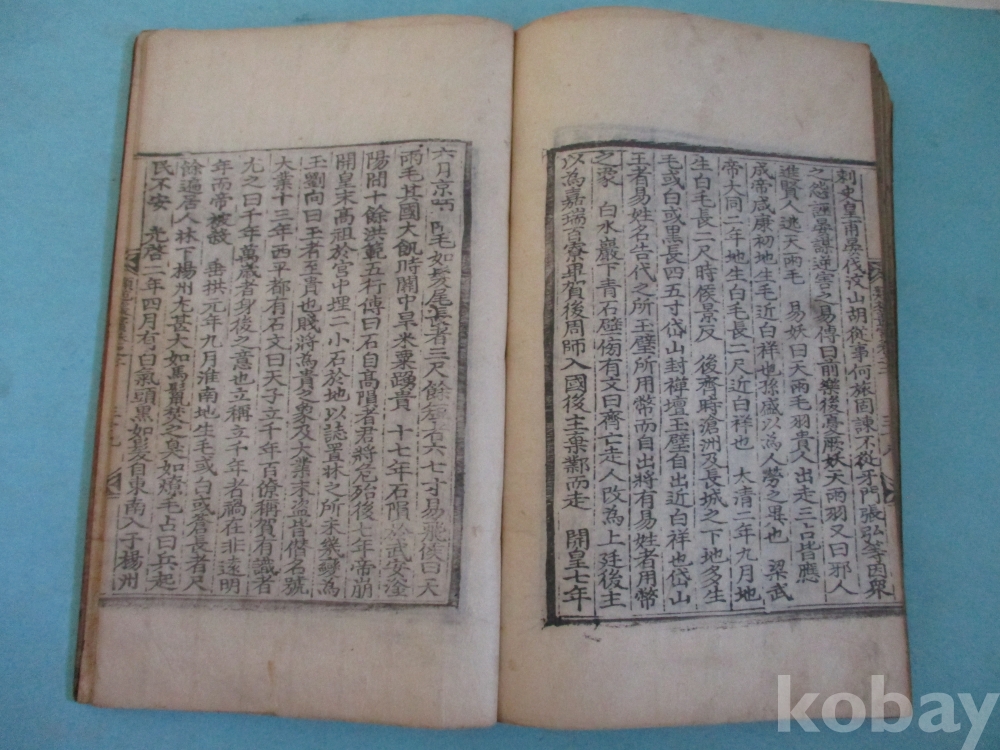 刺史皇甫晏伐汶山胡從事何旅固諫不從牙門張弘等因衆
之怨誣晏謀逆害之易傳曰前樂後憂厥妖天雨羽又曰邪人
進賢人逃天雨毛 易妖曰天雨毛羽貴人出走三占皆應
成帝咸康初地生毛近白祥也孫盛以為人勞之異也 梁武
帝大同二年地生白毛長二尺近白祥也 太清二年九月地
生白毛長二尺時候景反 後齊時滄洲及長城之下地多生
毛或白或黑長四五寸岱山封禪壇玉璧自出近白祥也岱山
王者易姓名告代之所玉璧所用幣而自出將有易姓者用幣
之象 白水巖下青石壁傍有文曰齊亡走人改為上廷後主
以為嘉瑞百寮畢賀後周師入國後主棄鄴而走 開皇七年
六月京師 毛如髮尾長者三尺餘 者六七寸易飛候曰天
雨毛其國大飢時關中旱米粟踴貴 十七年石隕於武安滏
陽間十餘洪範五行傳曰石自高陽者君將危殆後七年帝崩
開皇末高祖於宮中埋二小石於地以誌置牀之所未幾變為
玉劉向曰玉者至貴也賤將為貴之象及大業末盗皆僭名號
大業十三年西平郡有石文曰天子立千年百僚稱賀有識者
尤之曰千年萬歲者身後之意也立稱立千年者禍在非遠明
年而帝被殺 垂拱元年九月淮南地生毛或白或蒼長者尺
餘遍居人林下楊州尤甚大如馬鬣焚之臭如燎毛占曰兵起
民不安 光啓二年四月有白氣頭黑如髮自東南入于楊州